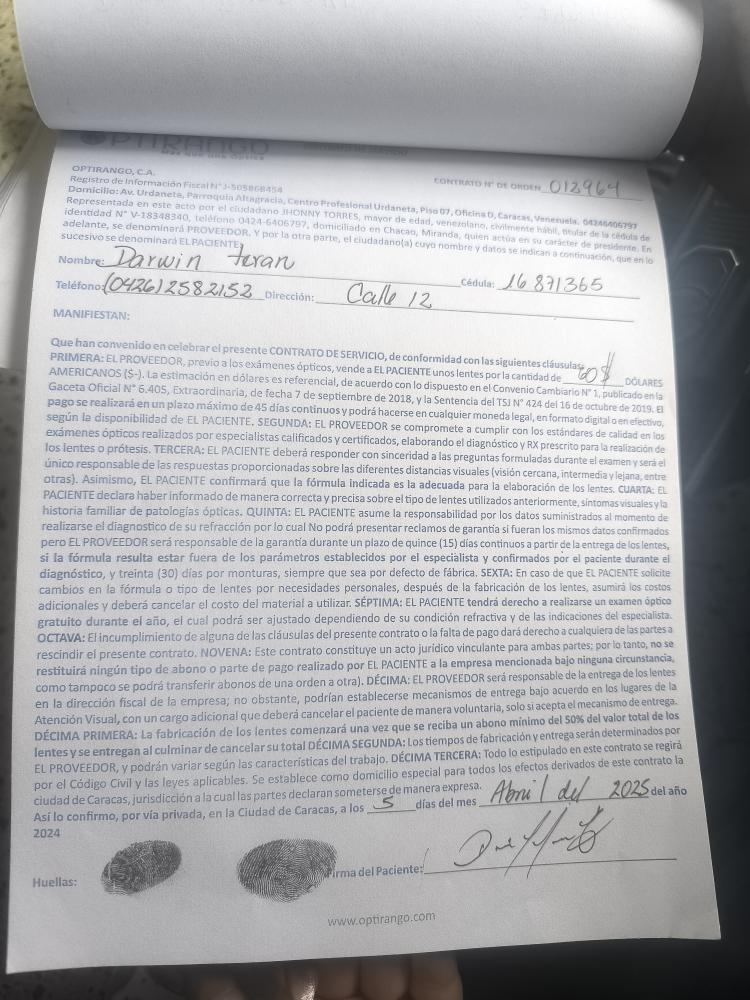 OPTIRANGO
Más que una Óptica
OPTIRANGO, C.A.
CONTRATO N° DE ORDEN 012964
Registro de Información Fiscal N° J-505868454
Domicilio: Av. Urdaneta, Parroquia Altagracia, Centro Profesional Urdaneta, Piso 07, Oficina D, Caracas, Venezuela. 04246406797
Representada en este acto por el ciudadano JHONNY TORRES, mayor de edad, venezolano, civilmente hábil, titular de la cédula de
identidad N° V-18348340, teléfono 0424-6406797, domiciliado en Chacao, Miranda, quien actúa en su carácter de presidente. En
adelante, se denominará PROVEEDOR. Y por la otra parte, el ciudadano(a) cuyo nombre y datos se indican a continuación, que en lo
sucesivo se denominará EL PACIENTE
Nombre: Darwin teran Cédula: 16 871365
Teléfono: (0426) 2582152 Dirección: Calle 12
MANIFIESTAN:
Que han convenido en celebrar el presente CONTRATO DE SERVICIO, de conformidad con las siguientes cláusulas:
PRIMERA: EL PROVEEDOR, previo a los exámenes ópticos, vende a EL PACIENTE unos lentes por la cantidad de 60$ DÓLARES
AMERICANOS ($-). La estimación en dólares es referencial, de acuerdo con lo dispuesto en el Convenio Cambiario N° 1, publicado en la
Gaceta Oficial N° 6.405, Extraordinaria, de fecha 7 de septiembre de 2018, y la Sentencia del TSJ N° 424 del 16 de octubre de 2019. El
pago se realizará en un plazo máximo de 45 días continuos y podrá hacerse en cualquier moneda legal, en formato digital o en efectivo,
según la disponibilidad de EL PACIENTE. SEGUNDA: EL PROVEEDOR se compromete a cumplir con los estándares de calidad en los
exámenes ópticos realizados por especialistas calificados y certificados, elaborando el diagnóstico y RX prescrito para la realización de
los lentes o prótesis. TERCERA: EL PACIENTE deberá responder con sinceridad a las preguntas formuladas durante el examen y será el
único responsable de las respuestas proporcionadas sobre las diferentes distancias visuales (visión cercana, intermedia y lejana, entre
otras). Asimismo, EL PACIENTE confirmará que la fórmula indicada es la adecuada para la elaboración de los lentes. CUARTA: EL
PACIENTE declara haber informado de manera correcta y precisa sobre el tipo de lentes utilizados anteriormente, síntomas visuales y la
historia familiar de patologías ópticas. QUINTA: EL PACIENTE asume la responsabilidad por los datos suministrados al momento de
realizarse el diagnostico de su refracción por lo cual No podrá presentar reclamos de garantía si fueran los mismos datos confirmados
pero EL PROVEEDOR será responsable de la garantía durante un plazo de quince (15) días continuos a partir de la entrega de los lentes,
si la fórmula resulta estar fuera de los parámetros establecidos por el especialista y confirmados por el paciente durante el
diagnóstico, y treinta (30) días por monturas, siempre que sea por defecto de fábrica. SEXTA: En caso de que EL PACIENTE solicite
cambios en la fórmula o tipo de lentes por necesidades personales, después de la fabricación de los lentes, asumirá los costos
adicionales y deberá cancelar el costo del material a utilizar. SÉPTIMA: EL PACIENTE tendrá derecho a realizarse un examen óptico
gratuito durante el año, el cual podrá ser ajustado dependiendo de su condición refractiva y de las indicaciones del especialista.
OCTAVA: El incumplimiento de alguna de las cláusulas del presente contrato o la falta de pago dará derecho a cualquiera de las partes a
rescindir el presente contrato. NOVENA: Este contrato constituye un acto jurídico vinculante para ambas partes; por lo tanto, no se
restituirá ningún tipo de abono o parte de pago realizado por EL PACIENTE a la empresa mencionada bajo ninguna circunstancia,
como tampoco se podrá transferir abonos de una orden a otra). DÉCIMA: EL PROVEEDOR será responsable de la entrega de los lentes
en la dirección fiscal de la empresa; no obstante, podrían establecerse mecanismos de entrega bajo acuerdo en los lugares de la
Atención Visual, con un cargo adicional que deberá cancelar el paciente de manera voluntaria, solo si acepta el mecanismo de entrega.
DÉCIMA PRIMERA: La fabricación de los lentes comenzará una vez que se reciba un abono mínimo del 50% del valor total de los
lentes y se entregan al culminar de cancelar su total DÉCIMA SEGUNDA: Los tiempos de fabricación y entrega serán determinados por
EL PROVEEDOR, y podrán variar según las características del trabajo. DÉCIMA TERCERA: Todo lo estipulado en este contrato se regirá
por el Código Civil y las leyes aplicables. Se establece como domicilio especial para todos los efectos derivados de este contrato la
ciudad de Caracas, jurisdicción a la cual las partes declaran someterse de manera expresa.
Así lo confirmo, por vía privada, en la Ciudad de Caracas, a los 5 días del mes Abril del 2025 del año
2024
Huellas: Firma del Paciente:
www.optirango.com